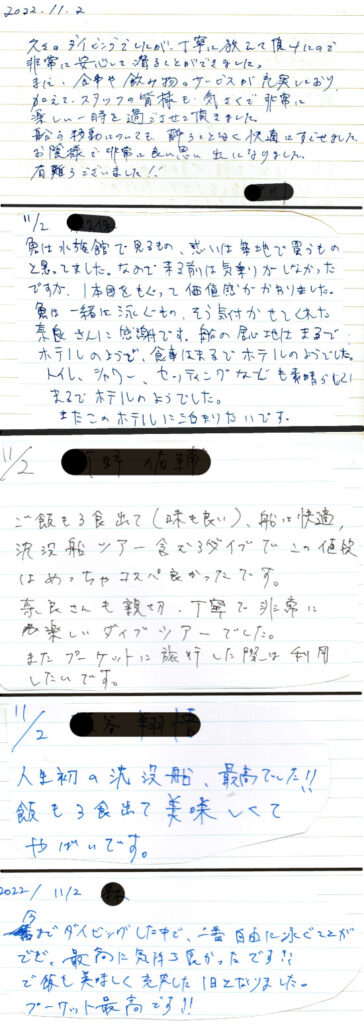 2022.11.2
久々のダイビングでしたが、丁寧に教えて頂けたので
非常に安心して潜ることができました。
また、食事や飲み物のサービスが充実しており
加えて、スタッフの皆様も気さくで非常に
楽しい一時を過ごさせて頂きました。
船の移動についても、酔うことなく快適にすごせました。
お陰様で非常に良い思い出になりました。
有難うございました!!
11/2
魚は水族館で見るもの、或いは築地で買うもの
と思ってました。なので来る前は気乗りがしなかった
ですが、1本目をもぐって価値感がかわりました。
魚は一緒に泳ぐもの、そう気付かせてくれた
奈良さんに感謝です。船の居心地はまるで
ホテルのようで、食事はまるでホテルのようでした。
トイレ、シャワー、セッティングなども素晴らしく
まるでホテルのようでした。
またこのホテルに泊まりたいです。
11/2
ご飯も3食出て(味も良い)、船は快適、
沈没船ツアー含む3ダイブでこの値段
はめっちゃコスパ良かったです。
奈良さんも親切、丁寧で非常に
楽しいダイブツアーでした。
またプーケットに旅行した際は利用
したいです。
11/2
人生初の沈没船、最高でした!!
飯も3食出て美味しくて
やばいです。
2022/11/2
今までダイビングした中で、一番自由に泳ぐことが
でき、最高に気持ち良かったです!!
ご飯も美味しく充実した1日となりました。
プーケット最高です!!